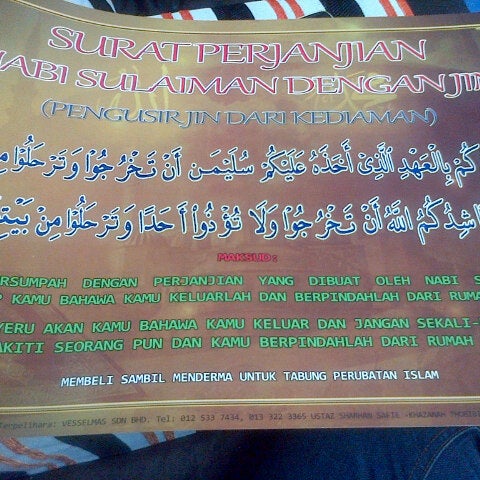 SURAT PERJANJIAN
NABI SULAIMAN DENGAN JIN
(PENGUSIR JIN DARI KEDIAMAN)
كُمْ بِالْعَهْدِ الَّذِيْ أَخَذَهُ عَلَيْكُمْ سُلَيْمَـن أَنْ تَخْرُجُوْا وَتَرْحَلُوْا مِ
شِدُكُمُ اللهَ أَنْ تَخْرُجُوْا وَلَا تُؤْذُوْا أَحَدًا وَتَرْحَلُوْا مِنْ بَيْ
MAKSUD:
ERSUMPAH DENGAN PERJANJIAN YANG DIBUAT OLEH NABI S
P KAMU BAHAWA KAMU KELUARLAH DAN BERPINDAHLAH DARI RUMA
YERU AKAN KAMU BAHAWA KAMU KELUAR DAN JANGAN SEKALI-
AKITI SEORANG PUN DAN KAMU BERPINDAHLAH DARI RUMAH
MEMBELI SAMBIL MENDERMA UNTUK TABUNG PERUBATAN ISLAM
Terpelihara: VESSELMAS SDN BHD. Tel: 012 533 7434, 013 322 3365 USTAZ SHARHAN SAFIE -KHAZANAH